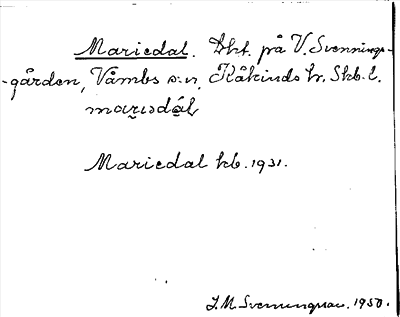 Mariedal. Dkt. på V. Svennings-
-gården, Våmbs s:n, Kåkinds hr, Skb. l.
marɩədál
Mariedal kb. 1931.
J. M. Svenungsson. 1950.